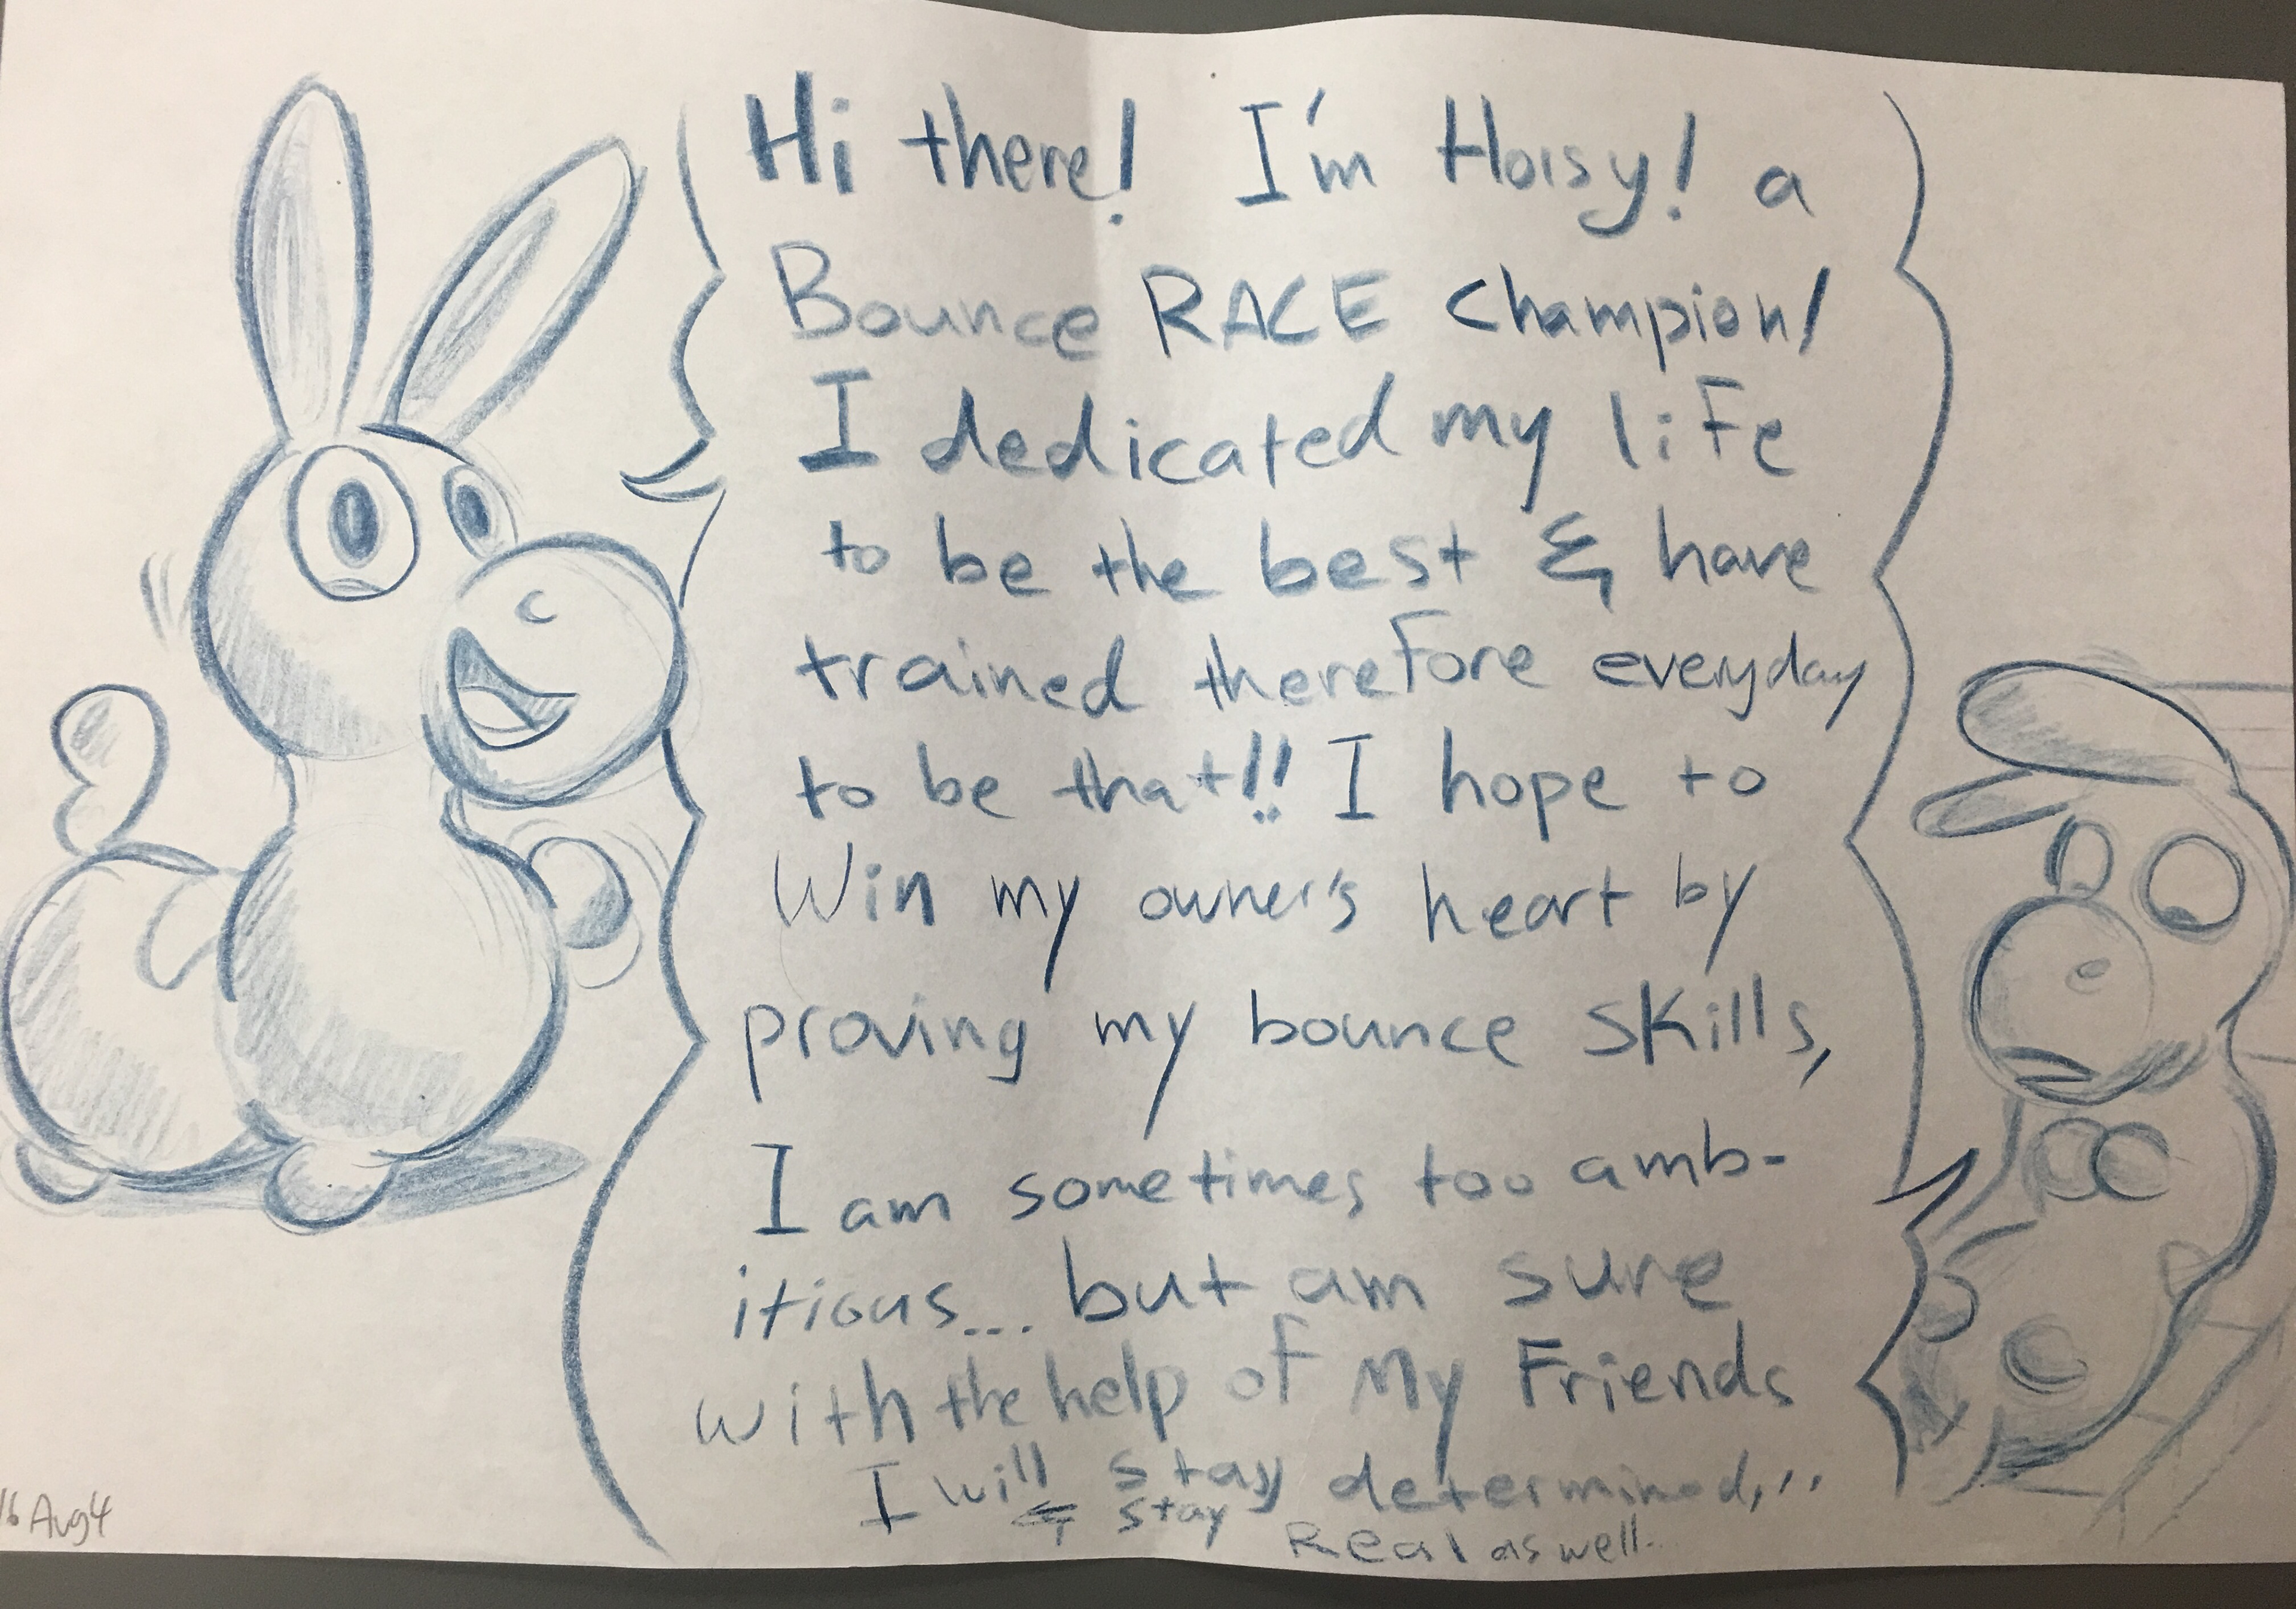 Hi there! I'm Hoisy! a
Bounce RACE Champion!
I dedicated my life
to be the best & have
trained therefore everyday
to be that!! I hope to
Win my owner's heart by
proving my bounce skills,
I am sometimes too amb-
itious... but am sure
with the help of My Friends
I will stay determined,..
& stay Real as well.
16 Aug 4